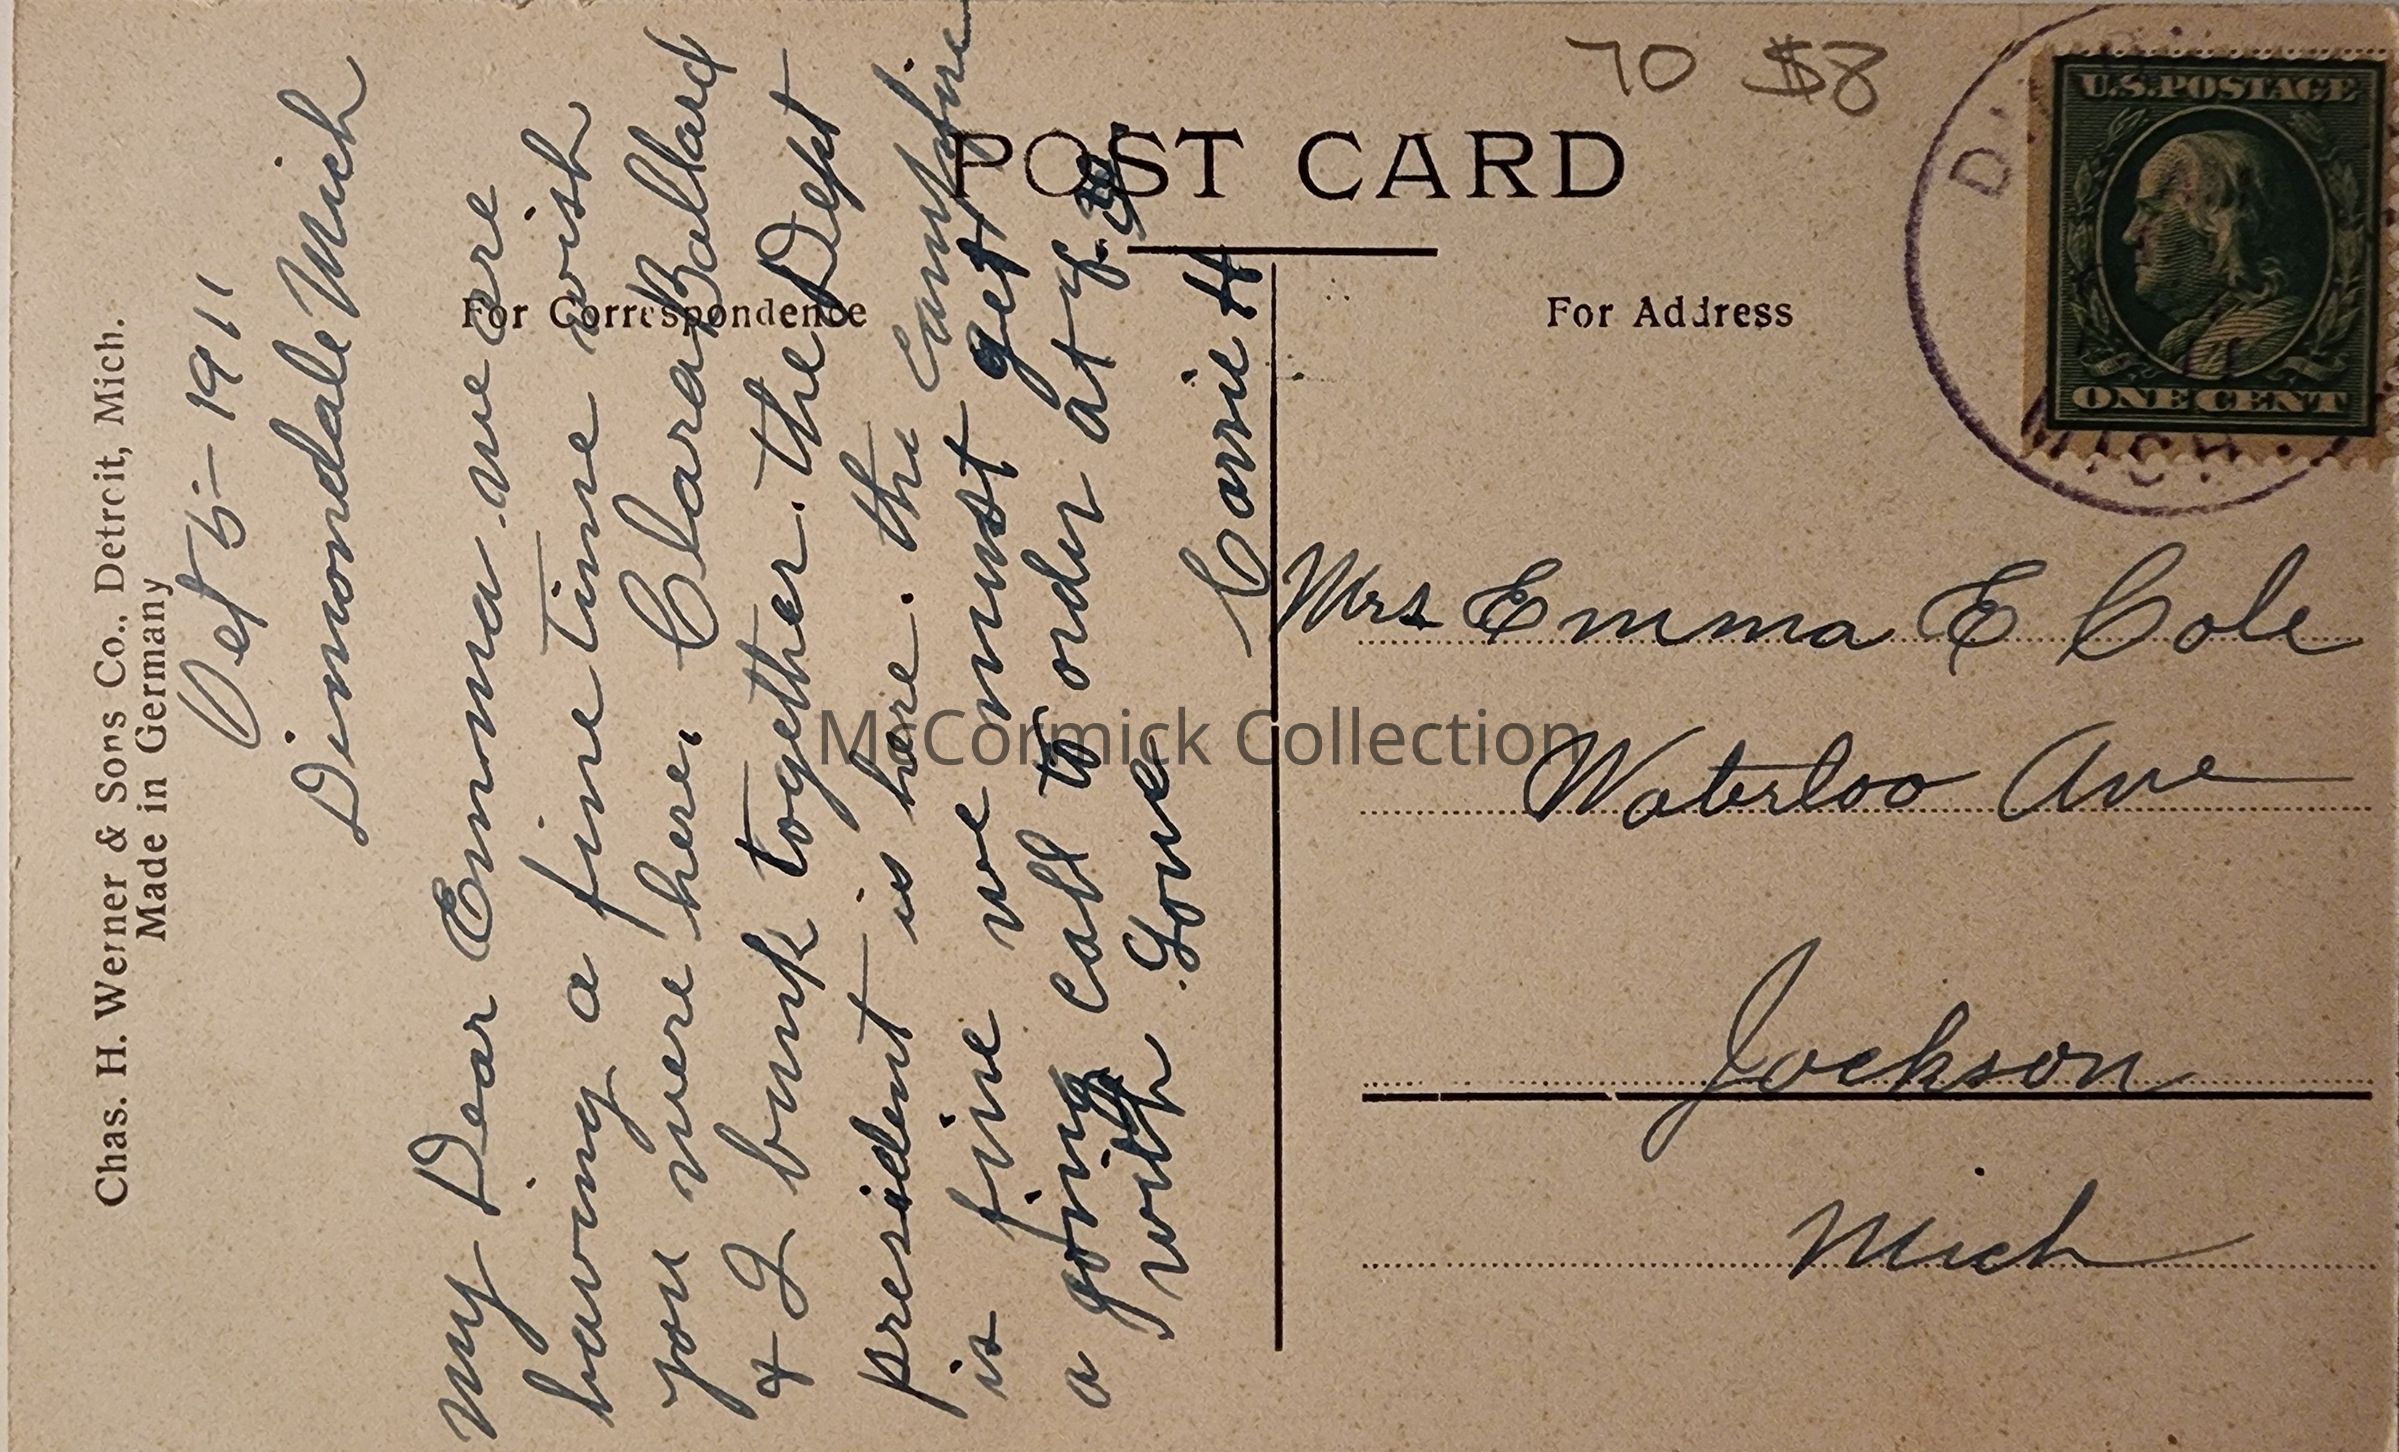 Chas. H. Werner & Sons Co., Detroit, Mich.
Made in Germany
POST CARD
For Correspondence
For Address
70 $8
U.S. POSTAGE
ONE CENT
MICH.
Oct 5 - 1911
Dimondale Mich
My Dear Emma. we are
having a fine time wish
you were here. Clara Ballard
& I bunk together. the Dept
president is here. the campfire
is fine we must get
a going call to order at
with Love
Carrie H
Mrs Emma E Cole
Waterloo Ave
Jackson
Mich
McCormick Collection